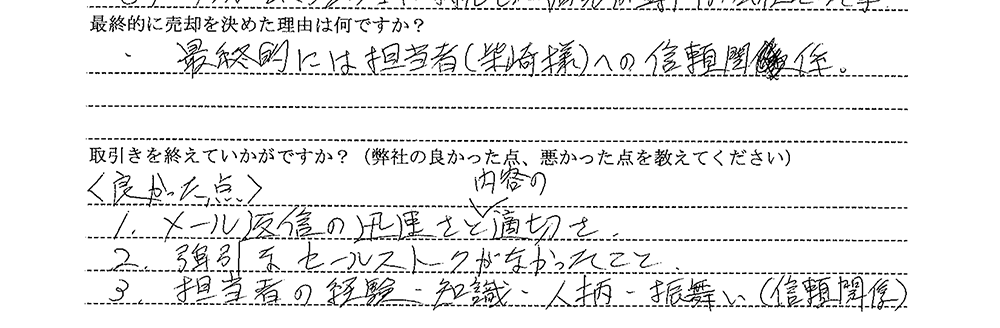 最終的に売却を決めた理由は何ですか?
・ 最終的には担当者(柴崎様)への信頼関係。
取引きを終えていかがですか?(弊社の良かった点、悪かった点を教えてください)
〈良かった点〉
1. メール返信の迅速さと内容の適切さ.
2. 強引なセールストークがなかったこと.
3. 担当者の経験・知識・人柄・振舞い(信頼関係)